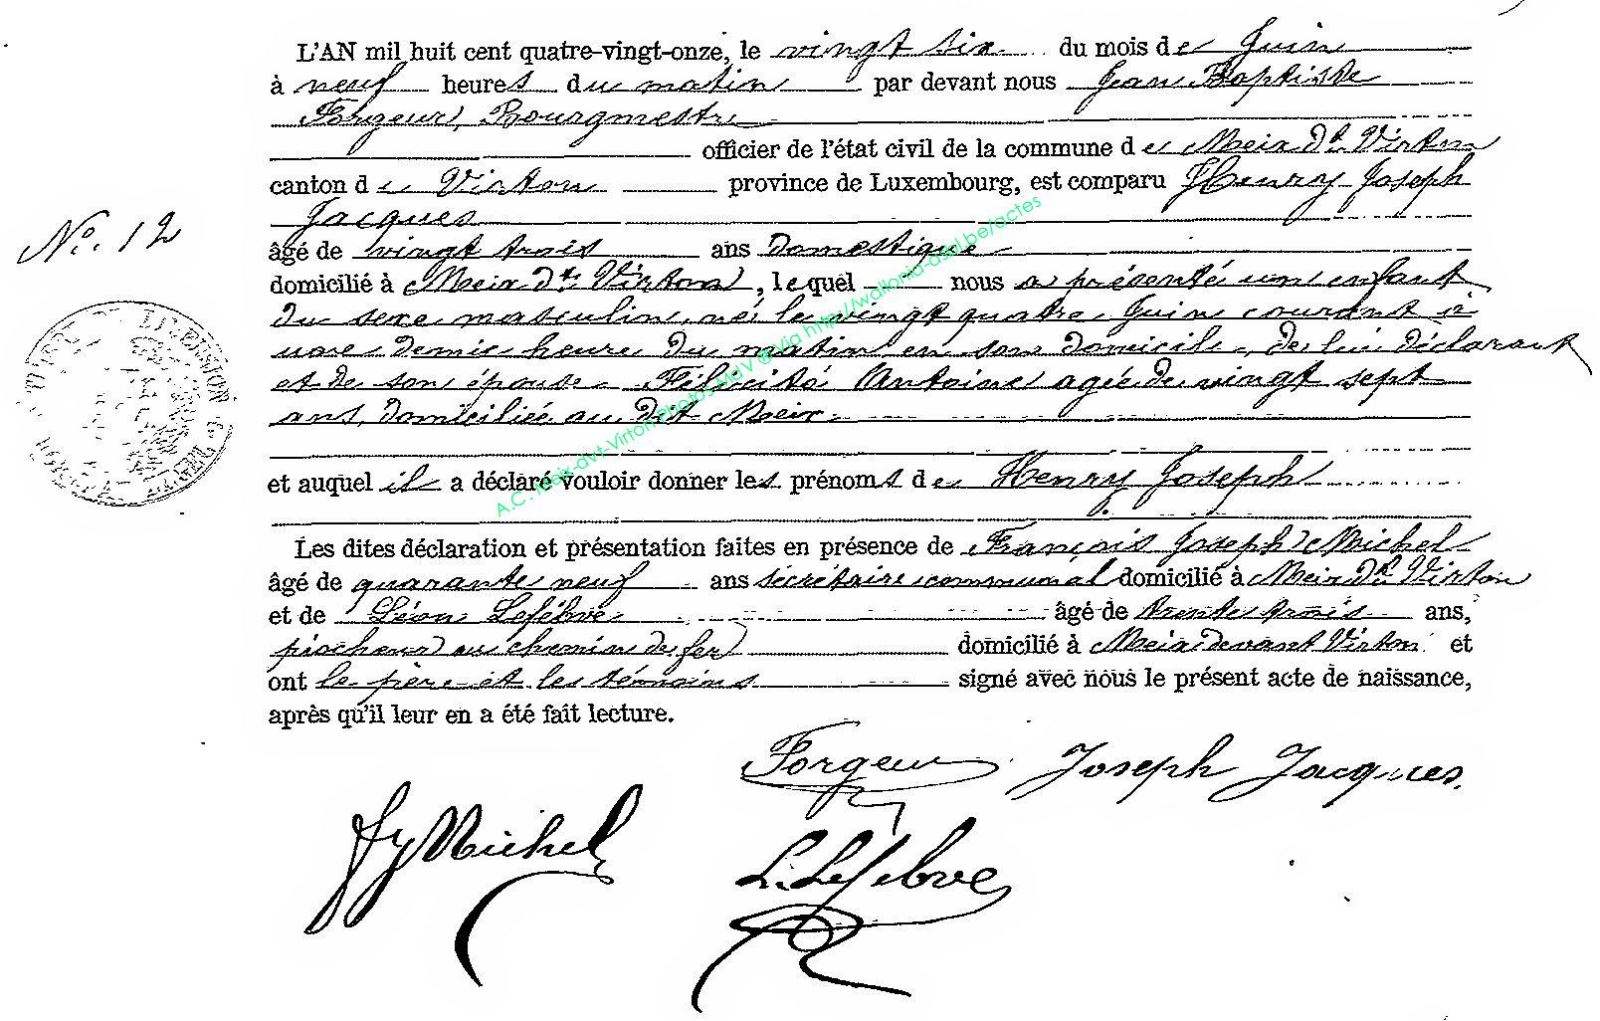 L'AN mil huit cent quatre-vingt-onze, le vingt six du mois de Juin
à neuf heures du matin par devant nous Jean Baptiste
Forgeur, Bourgmestre
officier de l'état civil de la commune de Meix Dt Virton
canton de Virton province de Luxembourg, est comparu Henry Joseph
Jacques
âgé de vingt trois ans Domestique
N° 12
domicilié à Meix Dt Virton, lequel nous a présenté un enfant
du sexe masculin, né le vingt quatre Juin courant à
une demie heure du matin en son domicile, de lui déclarant
et de son épouse Félicité Antoine agée de vingt sept
ans, domiciliée au dit Meix
et auquel il a déclaré vouloir donner les prénoms de Henry Joseph
Les dites déclaration et présentation faites en présence de François Joseph Michel
âgé de quarante neuf ans secrétaire communal domicilié à Meix Dt Virton
et de Léon Lefébve âgé de trente trois ans,
piocheur au chemin de fer domicilié à Meix devant Virton et
ont le père et les témoins signé avec nous le présent acte de naissance,
après qu'il leur en a été fait lecture.
Forgeur Joseph Jacques.
fJ Michel
L. Lefebve
A.C. Meix-dvt-Virton Photos GdV @ Via http://wallonia-asbl.be/actes